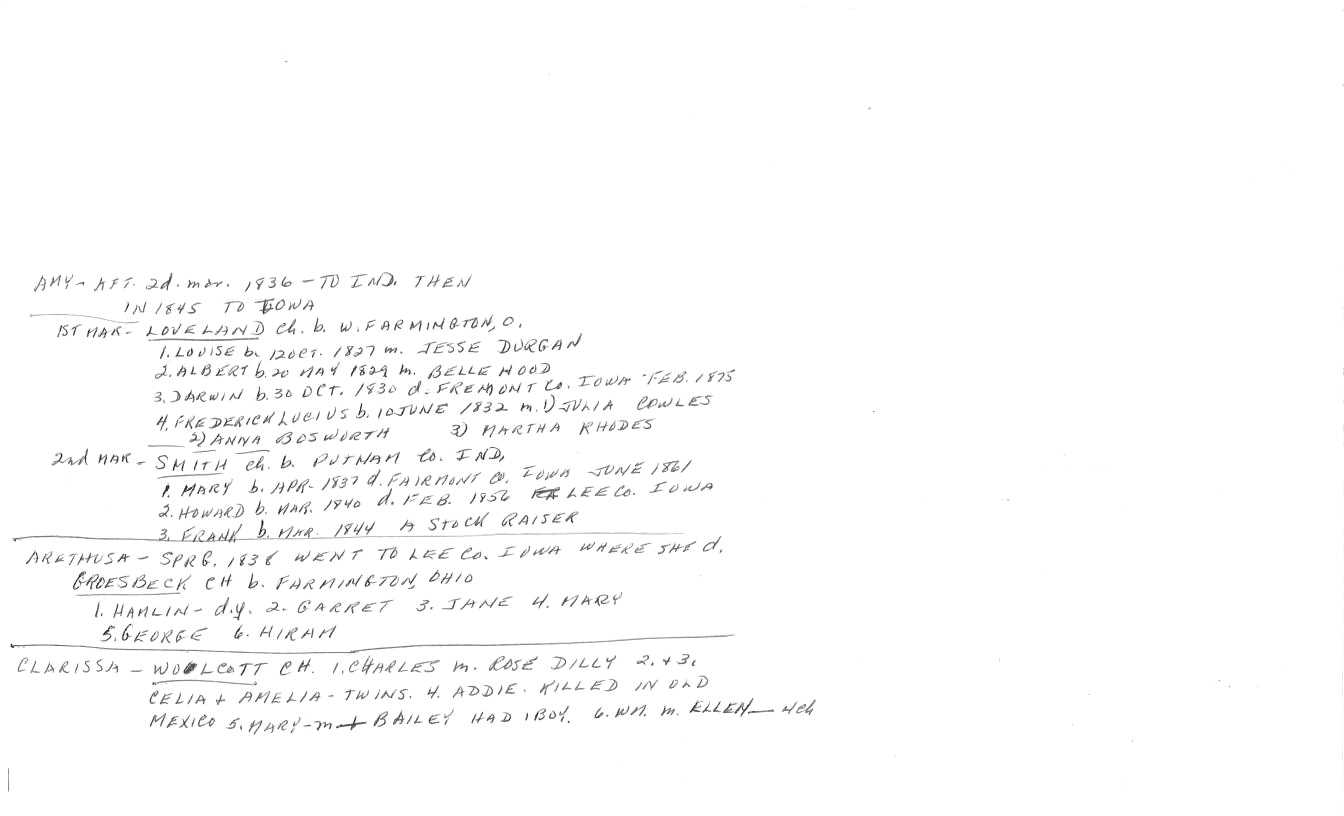 AMY - AFT. 2d. mar. 1836 - TO IND. THEN
IN 1845 TO IOWA
1ST MAR - LOVELAND Ch. b. W. FARMINGTON, O.
1. LOUISE b. 12 OCT. 1827 m. JESSE DURGAN
2. ALBERT b. 20 MAY 1829 m. BELLE HOOD
3. DARWIN b. 30 OCT. 1830 d. FREMONT Co. IOWA FEB. 1875
4. FREDERICK LUCIUS b. 10 JUNE 1832 m. 1) JULIA COWLES
2) ANNA BOSWORTH 3) MARTHA RHODES
2nd MAR - SMITH ch. b. PUTNAM Co. IND,
1. MARY b. APR- 1837 d. FAIRMONT Co. IOWA JUNE 1861
2. HOWARD b. MAR. 1840 d. FEB. 1856 LEE Co. IOWA
3. FRANK b. MAR. 1844 A STOCK RAISER
ARETHUSA - SPRG. 1838 WENT TO LEE Co. IOWA WHERE SHE d.
GROESBECK CH b. FARMINGTON, OHIO
1. HAMLIN - d.y. 2. GARRET 3. JANE 4. MARY
5. GEORGE 6. HIRAM
CLARISSA - WOOLCOTT CH. 1. CHARLES m. ROSE DILLY 2. + 3.
CELIA + AMELIA - TWINS. 4. ADDIE - KILLED IN OLD
MEXICO 5. MARY - m BAILEY HAD 1 BOY. 6. WM. m. ELLEN — 4 ch